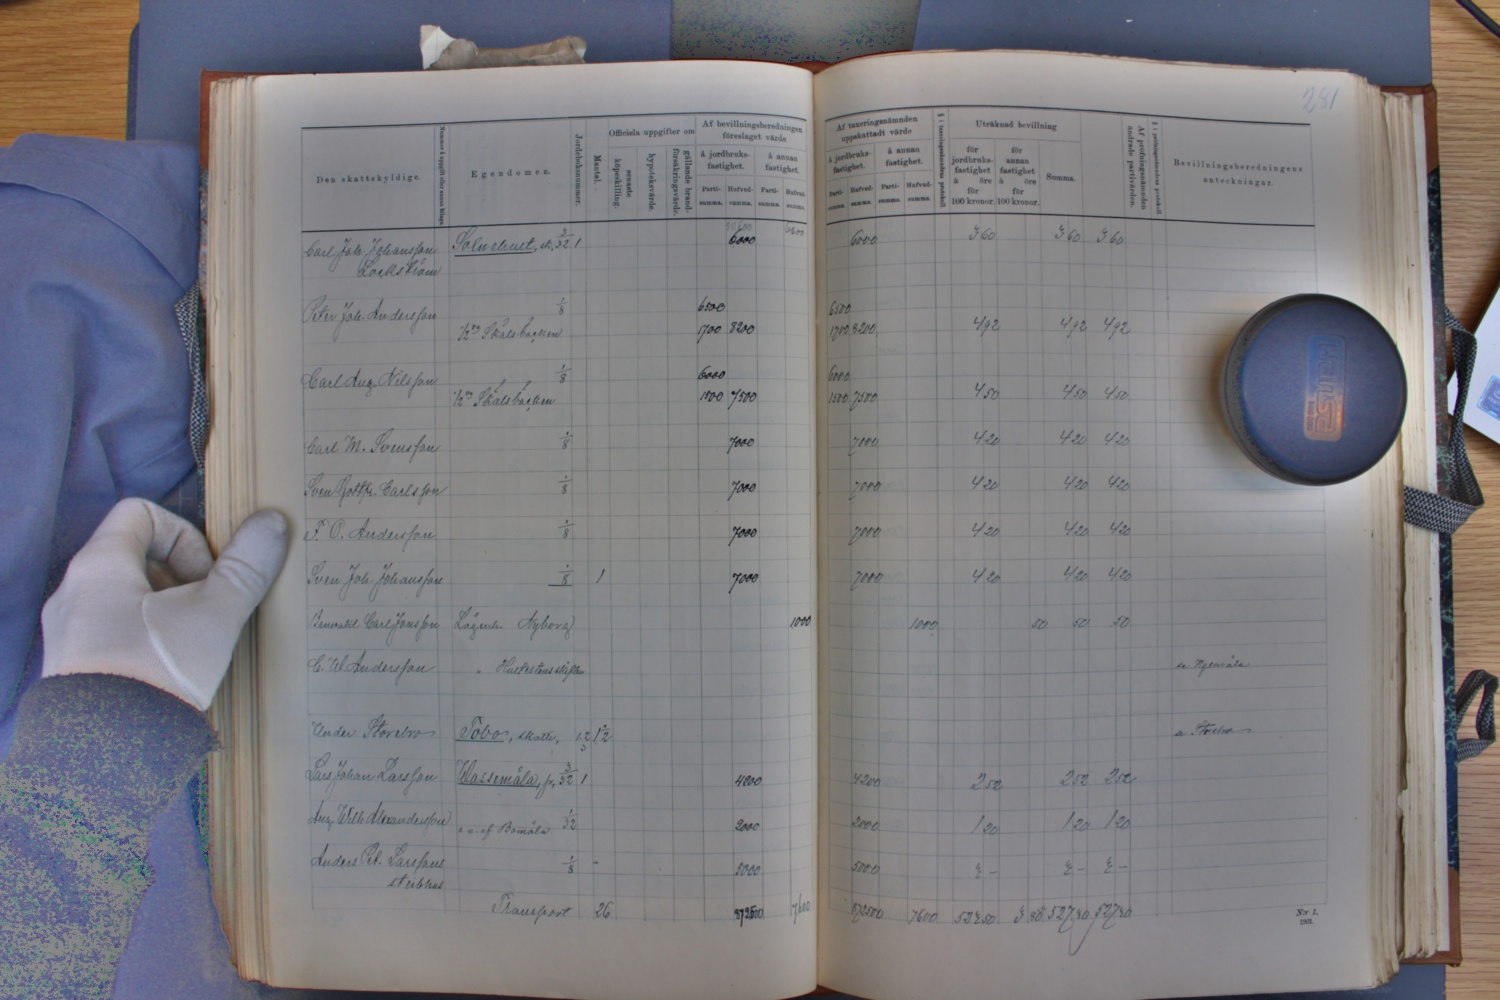 281
Den skattskyldige.
Nummer å uppgift eller annan bilaga.
Egendomen.
Jordeboksnummer.
Mantal.
Officiela uppgifter om
senaste köpeskilling.
hypoteksvärde.
gällande brandförsäkringsvärde.
Af bevillningsberedningen föreslaget värde
å jordbruksfastighet.
å annan fastighet.
Partisumma.
Hufvudsumma.
Partisumma.
Hufvudsumma.
Af taxeringsnämnden uppskattadt värde
å jordbruksfastighet.
å annan fastighet.
Partisumma.
Hufvudsumma.
Partisumma.
Hufvudsumma.
§ i taxeringsnämndens protokoll
Uträknad bevillning
för jordbruksfastighet à öre för 100 kronor.
för annan fastighet à öre för 100 kronor.
Summa.
Af pröfningsnämnden ändrade partivärden.
§ i pröfningsnämndens protokoll
Bevillningsberedningens anteckningar.
Carl Joh. Johansson 3/32 1 6000 6000 3 60 3 60 3 60
Peter Joh. Andersson 1/8 6500 6500
1/2 Skälsbacken 1700 8200 1700 8200 4 92 4 92 4 92
Carl Aug. Nilsson 1/8 6000 6000
1/2 Skälsbacken 1500 7500 1500 7500 4 50 4 50 4 50
Carl M. Svensson 1/8 7000 7000 4 20 4 20 4 20
Sven Gottfr. Carlsson 1/8 7000 7000 4 20 4 20 4 20
F. O. Andersson 1/8 7000 7000 4 20 4 20 4 20
Sven Joh. Johansson 1/8 1 7000 7000 4 20 4 20 4 20
Carl Jonsson Lägenh. Nyborg 1000 1000 50 50 50
C. W. Andersson "
Under Storebro Tobo, skatte, 1 2 3 1 1/2 se Storebro
Lars Johan Larsson Hassemåla, fr, 3/32 1 4200 4200 2 52 2 52 2 52
Aug. Wilh. Alexandersson 1/32 2000 2000 1 20 1 20 1 20
Anders Pet. Larssons 1/8 5000 5000 3 – 3 – 3 –
sterbhus
Transport 26 872500 7600 872500 7600 523 50 3 80 527 30 527 30
N:r 2.
1901.